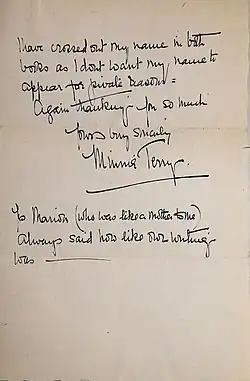 I have crossed out my name in both
books as I dont want my name to
appear for private reasons =
Again thanking for so much
Yours very sincerely
Minnie Terry.
To Marion (who was like a mother to me)
Always said how like our writing
was